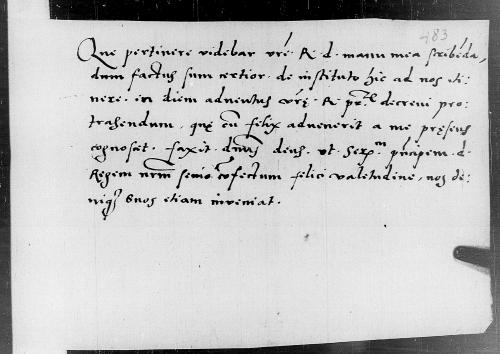 483
Que pertinere videbar vrē R. d. manu mea scribēda,
dum factus sum certior de instituto hic ad nos iti-
nere. in diem adventus vrę R. decrevi pro-
trahendum, quę cū felix advenerit a me pręsens
cognoscet. faxit deus. ut principem d.
Regem nrm confectum felici valetudine, nos de-
niq etiam inveniat.